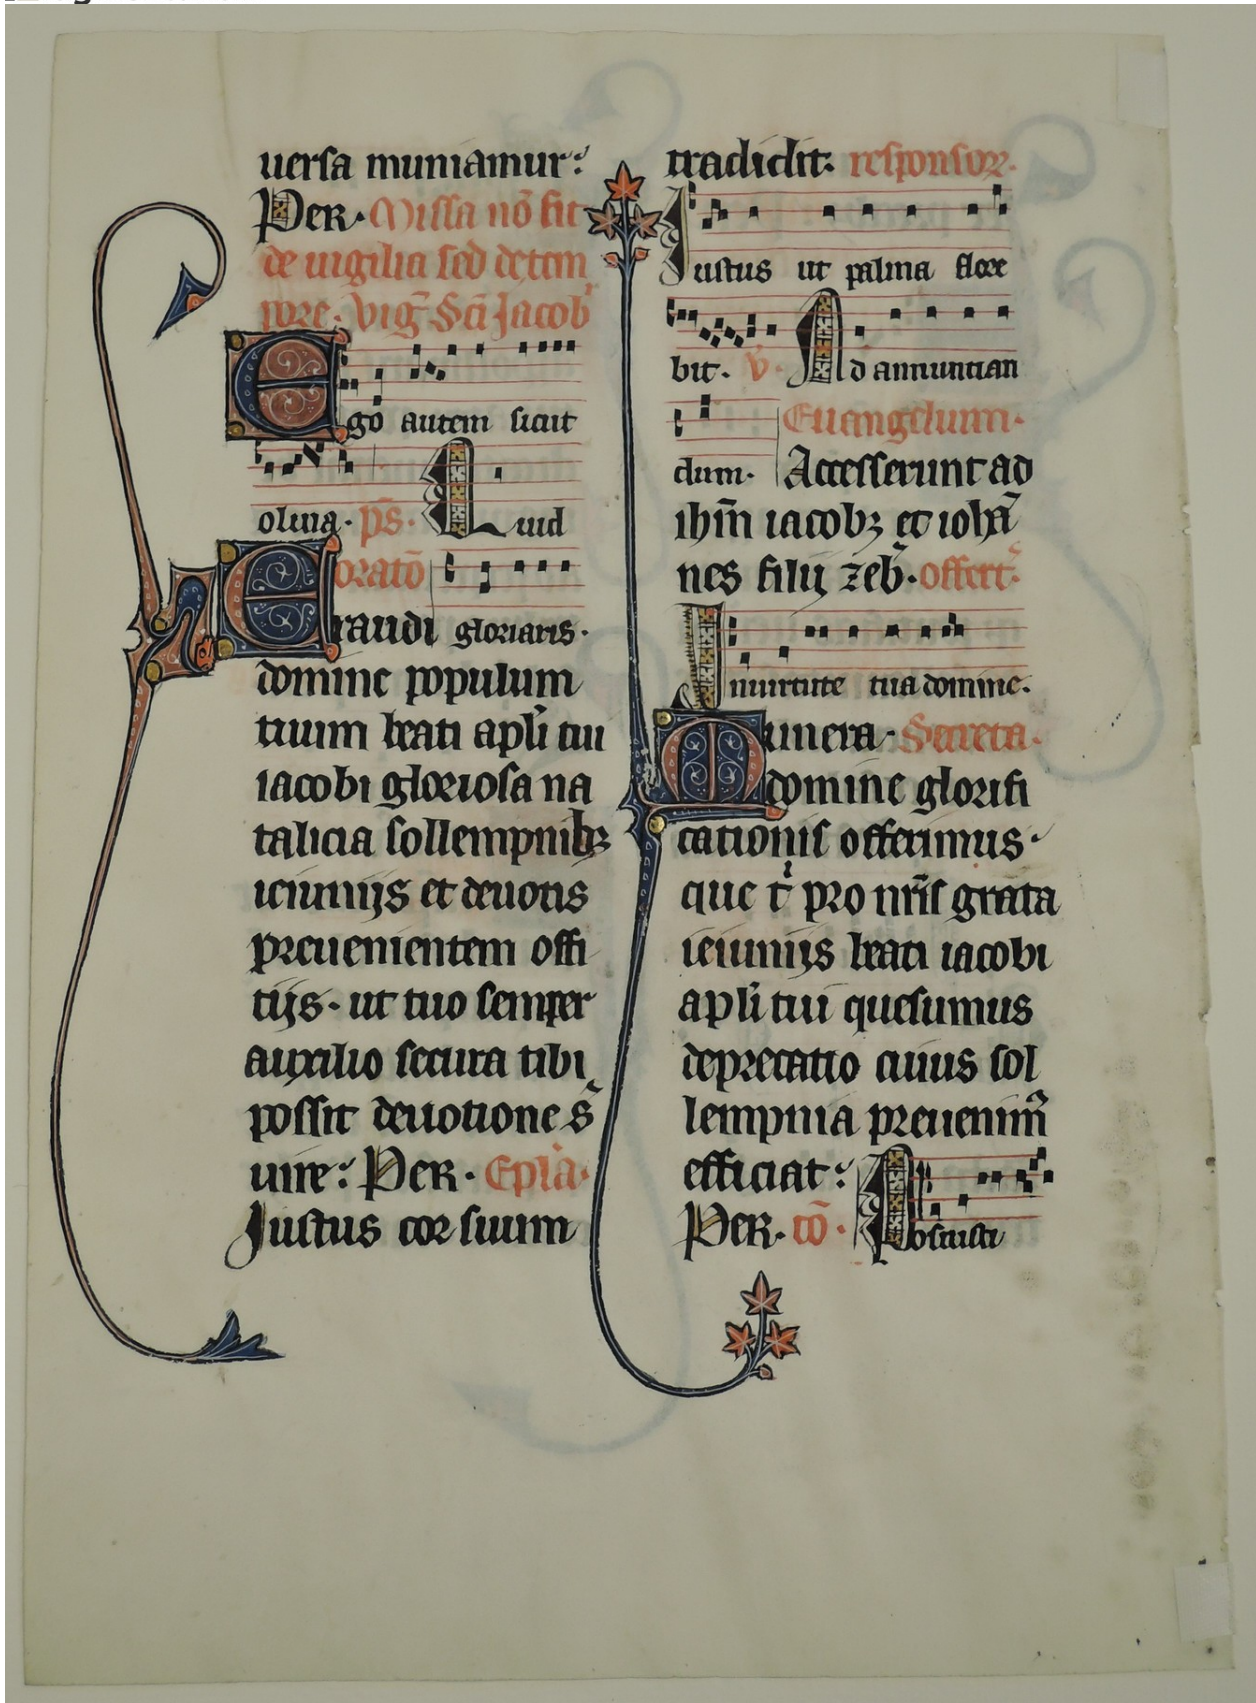 uersa muniamur:
Per. Missa nō fit
de uigilia sed de tem
pore. Vig̃ Sci Jacob
Ego autem sicut
oliua. ps. Quid
oratō
Exaudi gloriaris.
domine populum
tuum beati apl̃i tui
iacobi gloriosa na
talicia sollempnibꝫ
ieiunijs et deuotis
preuenientem offi
tijs. ut tuo semper
auxilio secura tibi
possit deuotione s̃
uire: Per. Epl̃a.
Justus cor suum
tradidit. responsor.
Justus ut palma flore
bit. v. Ad annuntian
dum. Euangelium.
Accesserunt ad
ihm̃ iacobꝫ et ioha
nes filij zeb. offert.
In uirtute tua domine.
Munera. Secreta.
domine glorifi
cationis offerimus.
que t pro nrĩs grata
ieiunijs beati iacobi
apl̃i tui quesumus
deprecatio cuius sol
lempnia preuenim̃
efficiat:
Per. cō. Posuisti